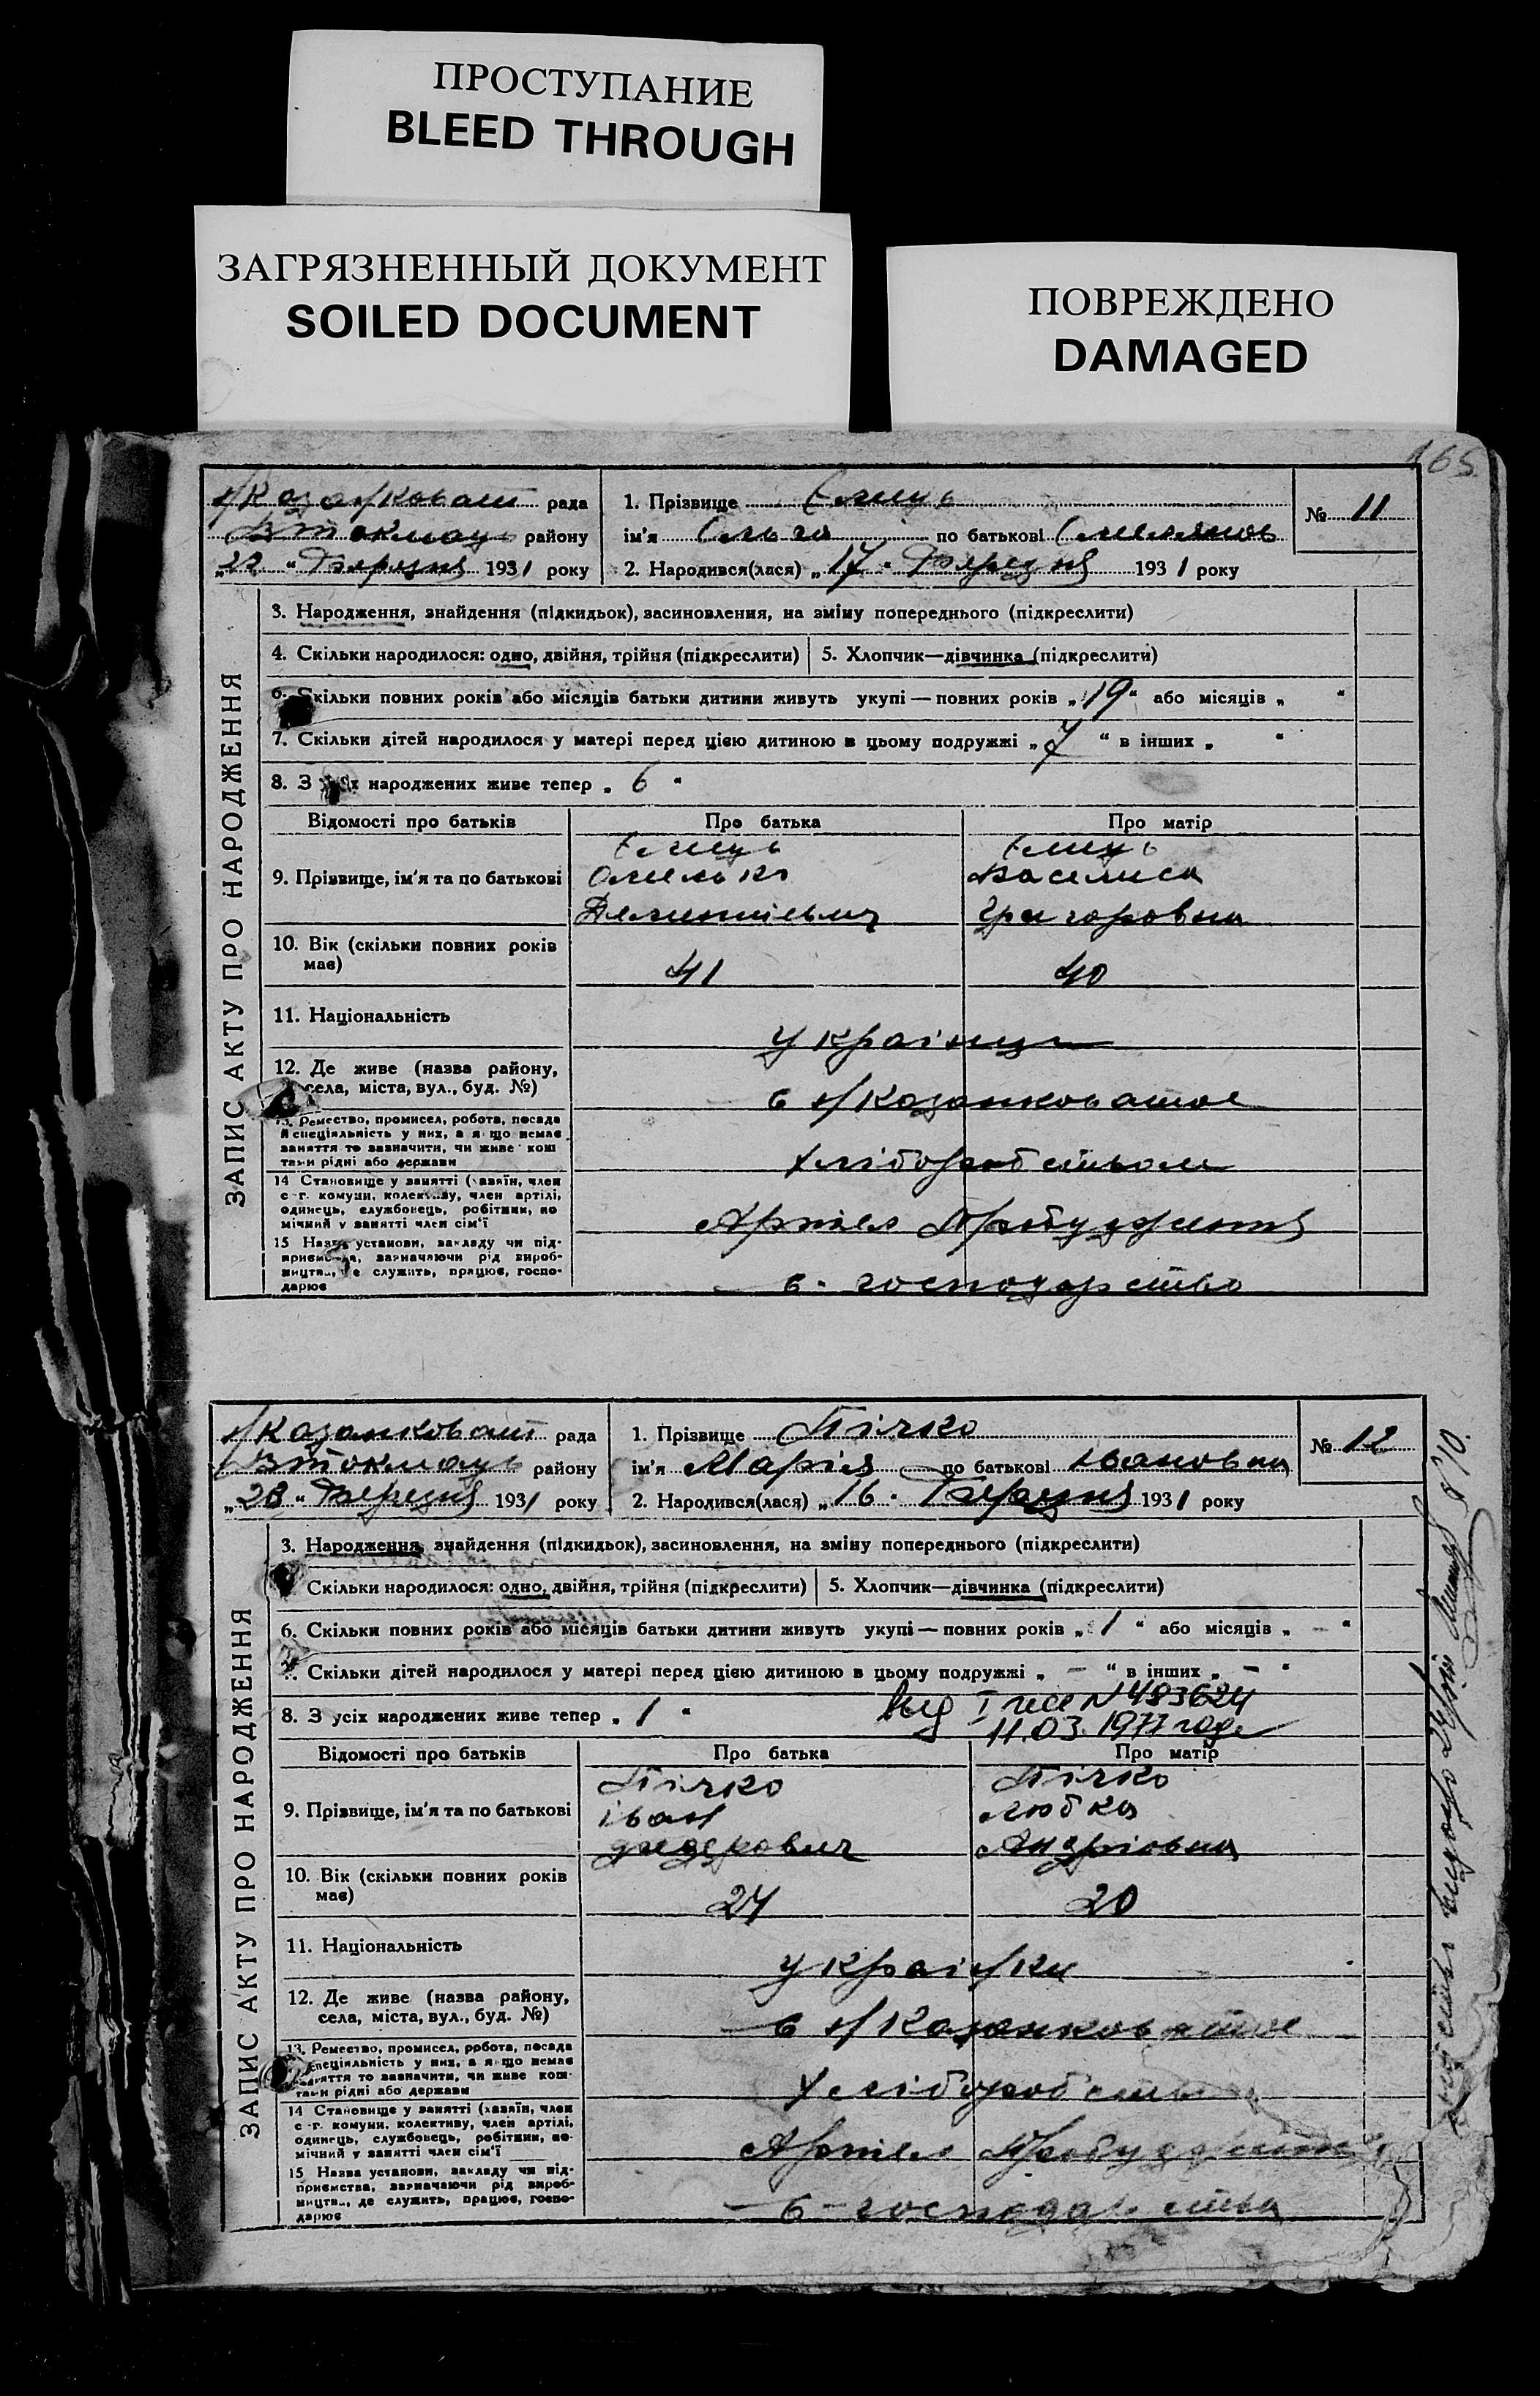 ПРОСТУПАНИЕ
BLEED THROUGH
ЗАГРЯЗНЕННЫЙ ДОКУМЕНТ
SOILED DOCUMENT
ПОВРЕЖДЕНО
DAMAGED
165
рада 1. Прізвище № 11
району ім'я Ольга по батькові
„22“ Березня 1931 року 2. Народився(лася) „17“ Березня 1931 року
ЗАПИС АКТУ ПРО НАРОДЖЕННЯ
3. Народження, знайдення (підкидьок), засиновлення, на зміну попереднього (підкреслити)
4. Скільки народилося: одно, двійня, трійня (підкреслити) 5. Хлопчик—дівчинка (підкреслити)
6. Скільки повних років або місяців батьки дитини живуть укупі — повних років „19“ або місяців „ “
7. Скільки дітей народилося у матері перед цією дитиною в цьому подружжі „7“ в інших „ “
8. З усіх народжених живе тепер „6“
Відомості про батьків Про батька Про матір
9. Прізвище, ім'я та по батькові
Омелько Василиса
Григоровна
10. Вік (скільки повних років має) 41 40
11. Національність українці
12. Де живе (назва району, села, міста, вул., буд. №) с Н/Казанковатое
13. Ремество, промисел, робота, посада й спеціяльність у них, а якщо немає заняття то зазначити, чи живе коштами рідні або держави хліборобством
14 Становище у занятті (хазяїн, член с.-г. комуни, колективу, член артілі, одинець, службовець, робітник, помічний у занятті член сім'ї Артіл
15 Назва установи, закладу чи підприємства, зазначаючи рід виробництва, де служить, працює, господарює с. господарство
Н/Казанковат рада 1. Прізвище Пічко № 12
В Токмацьк району ім'я Марія по батькові Івановна
„28“ Березня 1931 року 2. Народився(лася) „16“ Березня 1931 року
ЗАПИС АКТУ ПРО НАРОДЖЕННЯ
3. Народження, знайдення (підкидьок), засиновлення, на зміну попереднього (підкреслити)
Скільки народилося: одно, двійня, трійня (підкреслити) 5. Хлопчик—дівчинка (підкреслити)
6. Скільки повних років або місяців батьки дитини живуть укупі — повних років „1“ або місяців „–“
Скільки дітей народилося у матері перед цією дитиною в цьому подружжі „–“ в інших „–“
8. З усіх народжених живе тепер „1“
N 483624
11.03.1977 года
Відомості про батьків Про батька Про матір
9. Прізвище, ім'я та по батькові
Пічко Пічко
Іван Любка
Федерович Андріовна
10. Вік (скільки повних років має) 24 20
11. Національність українки
12. Де живе (назва району, села, міста, вул., буд. №) с Н/Казанковатое
13. Ремество, промисел, робота, посада й спеціяльність у них, а якщо немає заняття то зазначити, чи живе коштами рідні або держави
14 Становище у занятті (хазяїн, член с.-г. комуни, колективу, член артілі, одинець, службовець, робітник, помічний у занятті член сім'ї Артіл
15 Назва установи, закладу чи підприємства, зазначаючи рід виробництва, де служить, працює, господарює с – господарства